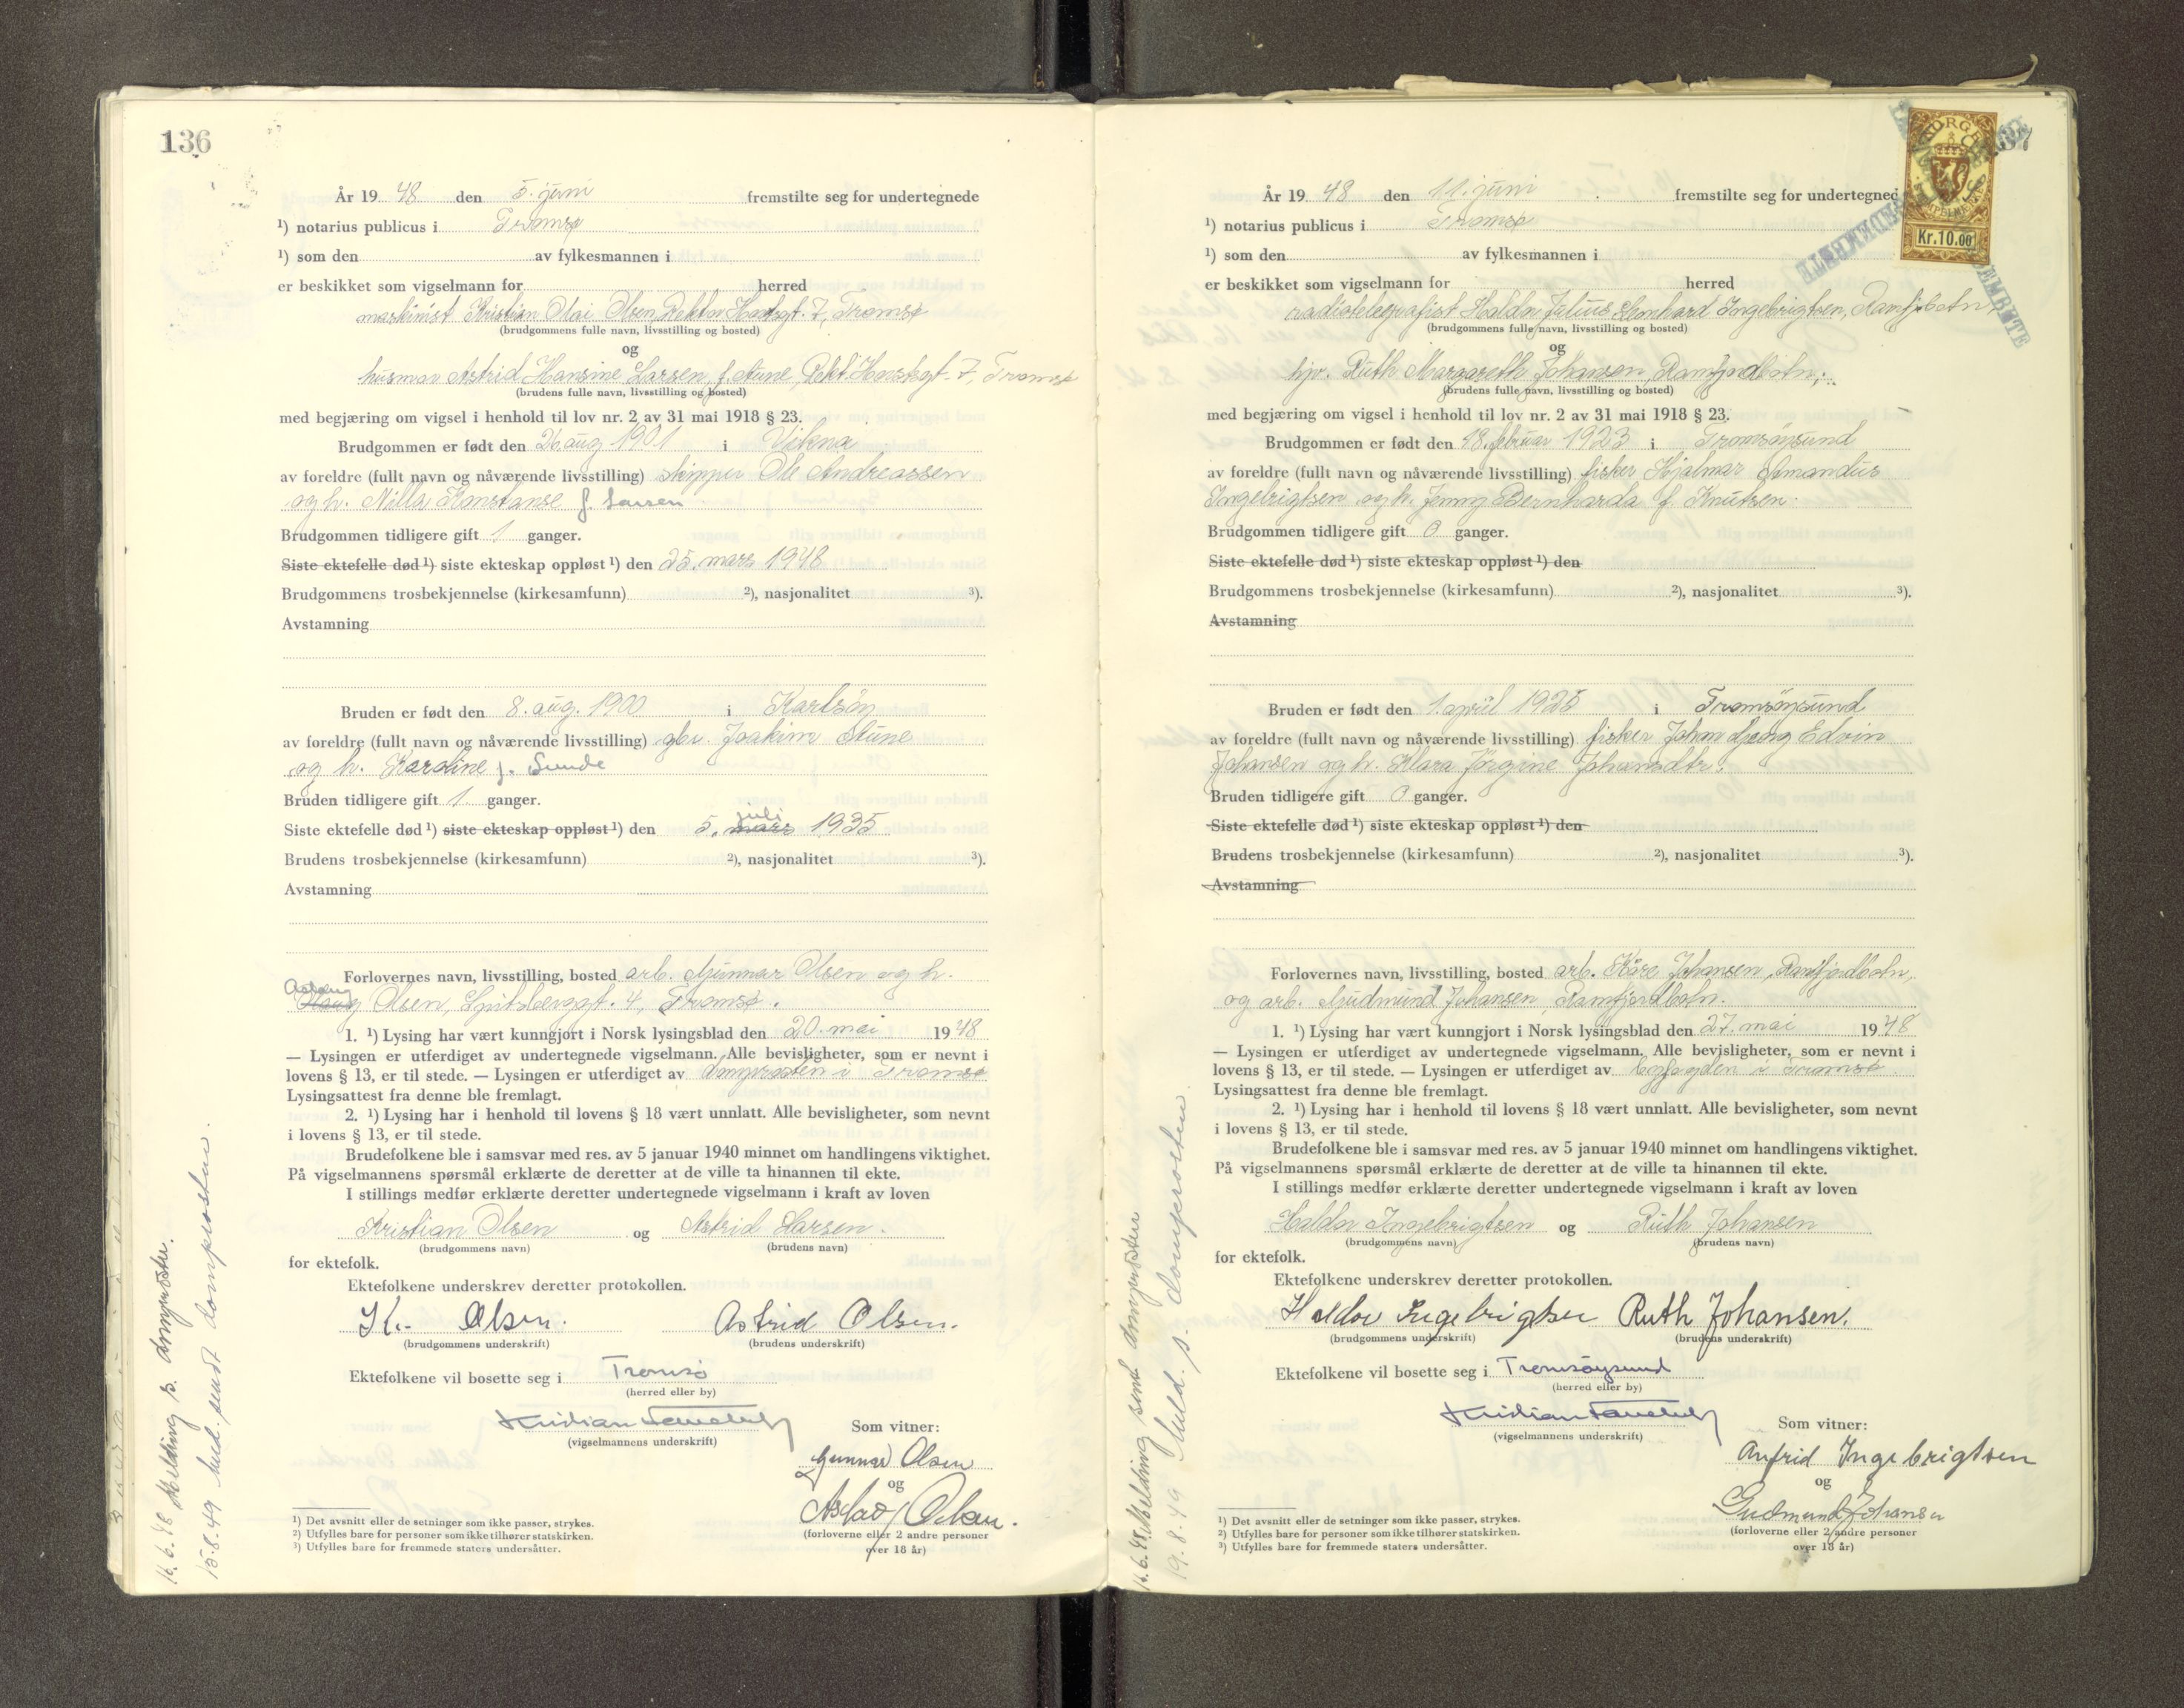 136
År 19 48 den 5. juni fremstilte seg for undertegnede
¹) notarius publicus i Tromsø
¹) som den av fylkesmannen i
er beskikket som vigselmann for herred
maskinist Kristian Olai Olsen, Rektor Horstsgt. 7, Tromsø
(brudgommens fulle navn, livsstilling og bosted)
og
husmor Astrid Hansine Larsen, f. Aune, Rekt. Horstsgt. 7, Tromsø
(brudens fulle navn, livsstilling og bosted)
med begjæring om vigsel i henhold til lov nr. 2 av 31 mai 1918 § 23.
Brudgommen er født den 26 aug 1901 i Vikna
av foreldre (fullt navn og nåværende livsstilling) skipper Ole Andreassen
og h. Nilla Konstanse f. Larsen
Brudgommen tidligere gift 1 ganger.
Siste ektefelle død ¹) siste ekteskap oppløst ¹) den 25. mars 1948
Brudgommens trosbekjennelse (kirkesamfunn) ²), nasjonalitet ³).
Avstamning
Bruden er født den 8. aug. 1900 i Karlsøy
av foreldre (fullt navn og nåværende livsstilling) gbr. Joakim Aune
og h. Karoline f. Sunde
Bruden tidligere gift 1 ganger.
juli
Siste ektefelle død ¹) siste ekteskap oppløst ¹) den 5. mars 1935
Brudens trosbekjennelse (kirkesamfunn) ²), nasjonalitet ³).
Avstamning
Forlovernes navn, livsstilling, bosted arb. Gunnar Olsen og h.
Olsen, Spitsberggt. 4, Tromsø.
1. ¹) Lysing har vært kunngjort i Norsk lysingsblad den 20. mai 19 48
— Lysingen er utferdiget av undertegnede vigselmann. Alle bevisligheter, som er nevnt i
lovens § 13, er til stede. — Lysingen er utferdiget av domprosten i Tromsø
Lysingsattest fra denne ble fremlagt.
2. ¹) Lysing har i henhold til lovens § 18 vært unnlatt. Alle bevisligheter, som nevnt
i lovens § 13, er til stede.
Brudefolkene ble i samsvar med res. av 5 januar 1940 minnet om handlingens viktighet.
På vigselmannens spørsmål erklærte de deretter at de ville ta hinannen til ekte.
I stillings medfør erklærte deretter undertegnede vigselmann i kraft av loven
Kristian Olsen og Astrid Larsen.
(brudgommens navn) (brudens navn)
for ektefolk.
Ektefolkene underskrev deretter protokollen.
Kr. Olsen. Astrid Olsen.
(brudgommens underskrift) (brudens underskrift)
Ektefolkene vil bosette seg i Tromsø
(herred eller by)
Kristian
(vigselmannens underskrift)
Som vitner:
Gunnar Olsen
og
Aslaug Olsen.
(forloverne eller 2 andre personer
over 18 år)
¹) Det avsnitt eller de setninger som ikke passer, strykes.
²) Utfylles bare for personer som ikke tilhører statskirken.
³) Utfylles bare for fremmede staters undersåtter.
11.6.48 Melding s. domprosten.
15.8.49 meld. sendt domprosten.
NORGE
Kr. 10.00
År 19 48 den 11. juni fremstilte seg for undertegned
¹) notarius publicus i Tromsø
¹) som den av fylkesmannen i
er beskikket som vigselmann for herred
radiotelegrafist Haldor Julius Leonhard Ingebrigtsen, Ramfjordbotn
(brudgommens fulle navn, livsstilling og bosted)
og
hjv. Ruth Margareth Johansen, Ramfjordbotn.
(brudens fulle navn, livsstilling og bosted)
med begjæring om vigsel i henhold til lov nr. 2 av 31 mai 1918 § 23.
Brudgommen er født den 18. februar 1923 i Tromsøysund
av foreldre (fullt navn og nåværende livsstilling) fisker Hjalmar Amandus
Ingebrigtsen og h. Jenny Bernharda f. Knutsen.
Brudgommen tidligere gift 0 ganger.
Siste ektefelle død ¹) siste ekteskap oppløst ¹) den
Brudgommens trosbekjennelse (kirkesamfunn) ²), nasjonalitet ³).
Avstamning
Bruden er født den 1. april 1928 i Tromsøysund
av foreldre (fullt navn og nåværende livsstilling) fisker Johan Edvin
Johansen og h. Klara Jörgine Johansdtr.
Bruden tidligere gift 0 ganger.
Siste ektefelle død ¹) siste ekteskap oppløst ¹) den
Brudens trosbekjennelse (kirkesamfunn) ²), nasjonalitet ³).
Avstamning
Forlovernes navn, livsstilling, bosted arb. Kåre Johansen, Ramfjordbotn,
og arb. Gudmund Johansen, Ramfjordbotn.
1. ¹) Lysing har vært kunngjort i Norsk lysingsblad den 27. mai 19 48
— Lysingen er utferdiget av undertegnede vigselmann. Alle bevisligheter, som er nevnt i
lovens § 13, er til stede. — Lysingen er utferdiget av byfogden i Tromsø.
Lysingsattest fra denne ble fremlagt.
2. ¹) Lysing har i henhold til lovens § 18 vært unnlatt. Alle bevisligheter, som nevnt
i lovens § 13, er til stede.
Brudefolkene ble i samsvar med res. av 5 januar 1940 minnet om handlingens viktighet.
På vigselmannens spørsmål erklærte de deretter at de ville ta hinannen til ekte.
I stillings medfør erklærte deretter undertegnede vigselmann i kraft av loven
Haldor Ingebrigtsen og Ruth Johansen
(brudgommens navn) (brudens navn)
for ektefolk.
Ektefolkene underskrev deretter protokollen.
Haldor Ingebrigtsen Ruth Johansen.
(brudgommens underskrift) (brudens underskrift)
Ektefolkene vil bosette seg i Tromsøysund
(herred eller by)
Kristian
(vigselmannens underskrift)
Som vitner:
Anfrid Ingebrigtsen
og
Gudmund Johansen
(forloverne eller 2 andre personer
over 18 år)
¹) Det avsnitt eller de setninger som ikke passer, strykes.
²) Utfylles bare for personer som ikke tilhører statskirken.
³) Utfylles bare for fremmede staters undersåtter.
11.6.48 Melding sent domprosten
19.8.49 Meld. s. domprosten